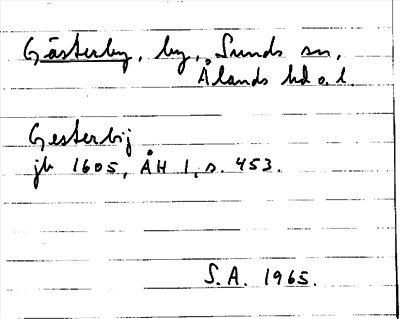 Gästerby, by, Sunds sn,
Ålands hd o. l.
Gesterbij
jb 1605, ÅH 1, s. 453.
S.A. 1965.